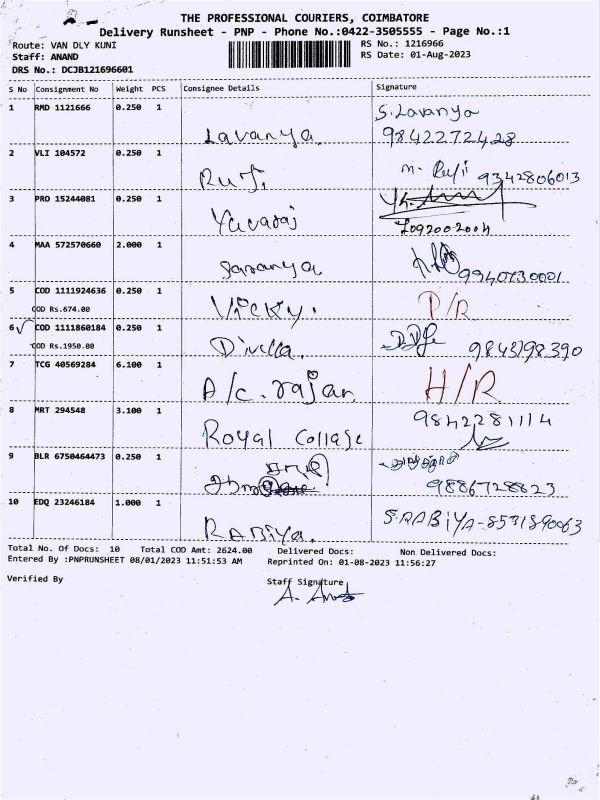 THE PROFESSIONAL COURIERS, COIMBATORE
Delivery Runsheet - PNP - Phone No.:0422-3505555 - Page No.:1
Route: VAN DLY KUNI
RS No.: 1216966
Staff: ANAND
RS Date: 01-Aug-2023
DRS No.: DCJB121696601
S No Consignment No Weight PCS Consignee Details Signature
1 RMD 1121666 0.250 1 Lavanya. S. Lavanya
9842272428
2 VLI 104572 0.250 1 9342806013
3 PRO 15244081 0.250 1 Yavaraj
4 MAA 572570660 2.000 1 Saranya
5 COD 1111924636 0.250 1 Vicky. D/R
COD Rs.674.00
6 COD 1111860184 0.250 1
COD Rs.1950.00
7 TCG 40569284 6.100 1 A/c. rajan H/R
8 MRT 294548 3.100 1 Royal Collage 9842281114
9 BLR 6750464473 0.250 1
9886728823
10 EDQ 23246184 1.000 1 RABiya. S.RABiYA-8531890063
Total No. Of Docs: 10 Total COD Amt: 2624.00 Delivered Docs: Non Delivered Docs:
Entered By :PNPRUNSHEET 08/01/2023 11:51:53 AM Reprinted On: 01-08-2023 11:56:27
Verified By Staff Signature